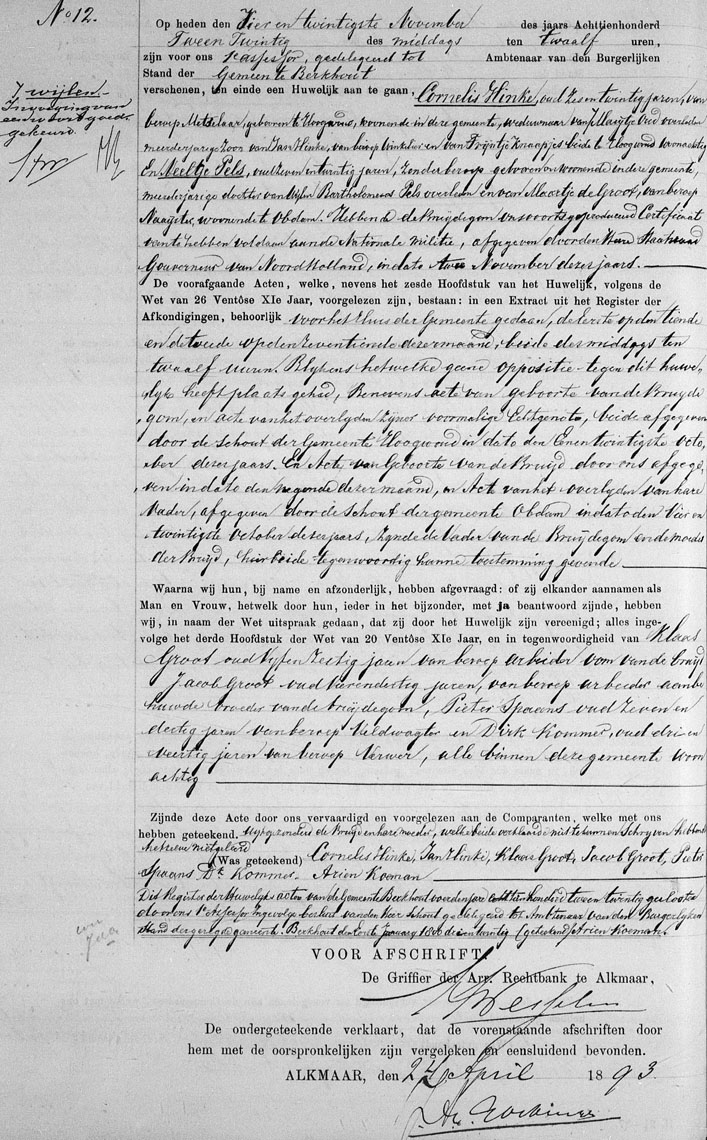 No 12.
Op heden den Vier en twintigste November des jaars Achttienhonderd
Tween Twintig des middags ten twaalf uren,
zijn voor ons assessor, gedelegeerd tot Ambtenaar van den Burgerlijken
Stand der Gemeente Berkhout
verschenen, ten einde een Huwelijk aan te gaan, Cornelis Hinke, oud zes en twintig jaren, van
beroep Metselaar, geboren te Hoogwoud, woonende in deze gemeente, weduwnaar van Maartje Oud overleden
meerderjarige zoon van Jan Hinke, van beroep Winkelier en van Trijntje Knaapje beide te Hoogwoud woonachtig
En Neeltje Pels, oud zeven en twintig jaren, Zonder beroep geboren en woonende in deze gemeente,
meerderjarige dochter van Wijlen Bartholomeus Pels overleden en van Maartje de Groot, van beroep
Naaijster, woonende te Obdam. Hebbende de Bruijdegom ons voorts geproduceerd Certificaat
van te hebben voldaan aan de Nationale militie, afgegeven door den Heer Staatsraad
Gouverneur van Noord Holland, in dato twee November dezes jaars.
De voorafgaande Acten, welke, nevens het zesde Hoofdstuk van het Huwelijk, volgens de
Wet van 26 Ventôse XIe Jaar, voorgelezen zijn, bestaan: in een Extract uit het Register der
Afkondigingen, behoorlijk voor het Huis der Gemeente gedaan, de Eerste op den tiende
en de tweede op den Zeventiende dezer maand, beide des middags ten
twaalf uuren. Blijkens hetwelke geene oppositie tegen dit huwe-
lijk heeft plaats gehad, Benevens acte van geboorte van de Bruijde
gom, en acte van het overlyden Zijner voormalige Echtgenote, beide afgegeven
door de Schout der Gemeente Hoogwoud in dato den Eenentwintigste octo
ber dezer jaars. En Acte van Geboorte van de Bruijd door ons afgege
ven in dato den negende dezer maand, en Act van het overlyden van hare
Vader, afgegeven door de Schout der gemeente Obdam in dato den Vier en
twintigste october dezer jaars, Zijnde de Vader van de Bruijdegom en de moeder
der Bruijd, hier beide tegenwoordig hunne toestemming gevende
Waarna wij hun, bij name en afzonderlijk, hebben afgevraagd: of zij elkander aannamen als
Man en Vrouw, hetwelk door hun, ieder in het bijzonder, met ja beantwoord zijnde, hebben
wij, in naam der Wet uitspraak gedaan, dat zij door het Huwelijk zijn vereenigd; alles inge-
volge het derde Hoofdstuk der Wet van 20 Ventôse XIe Jaar, en in tegenwoordigheid van Klaas
Groot oud Vyf en Zestig jaren van beroep arbeider oom van de bruijd
Jacob Groot oud Vierendertig jaren, van beroep arbeider aanbe
huwde broeder van de bruijdegom, Pieter Spaans oud Zeven en
dertig jaren van beroep Veldwagter en Dirk Kommer, oud drie en
veertig jaren van beroep Verwer, alle binnen deze gemeente woon
achtig
Zijnde deze Acte door ons vervaardigd en voorgelezen aan de Comparanten, welke met ons
hebben geteekend. uijtgezonderd de Bruijd en hare moeder, welke beide verklaarde niet te kunnen Schryven hebbende
hetzelve niet geleerd
(Was geteekend) Cornelis Hinke, Jan Hinke, Klaas Groot, Jacob Groot, Pieter
Spaans Dk Kommer. Arien Koeman
Dit Register der Huwelyks acten van de Gemeente Berkhout voor den jare achttienhonderd tween twintig gesloten
door ons assessor Ingevolge besluit van den Heer Schout gedelegeerd tot Ambtenaar van den Burgerlyken
Stand der gezegde gemeente. Berkhout den Eerste January 1800 drieentwintig (geteekend) Arien Koeman.
VOOR AFSCHRIFT
De Griffier der Arr. Rechtbank te Alkmaar,
De ondergeteekende verklaart, dat de vorenstaande afschriften door
hem met de oorspronkelijken zijn vergeleken en eensluidend bevonden.
ALKMAAR, den 24 April 1893.
wijlen
Invoeging van
een woord goed-
gekeurd.